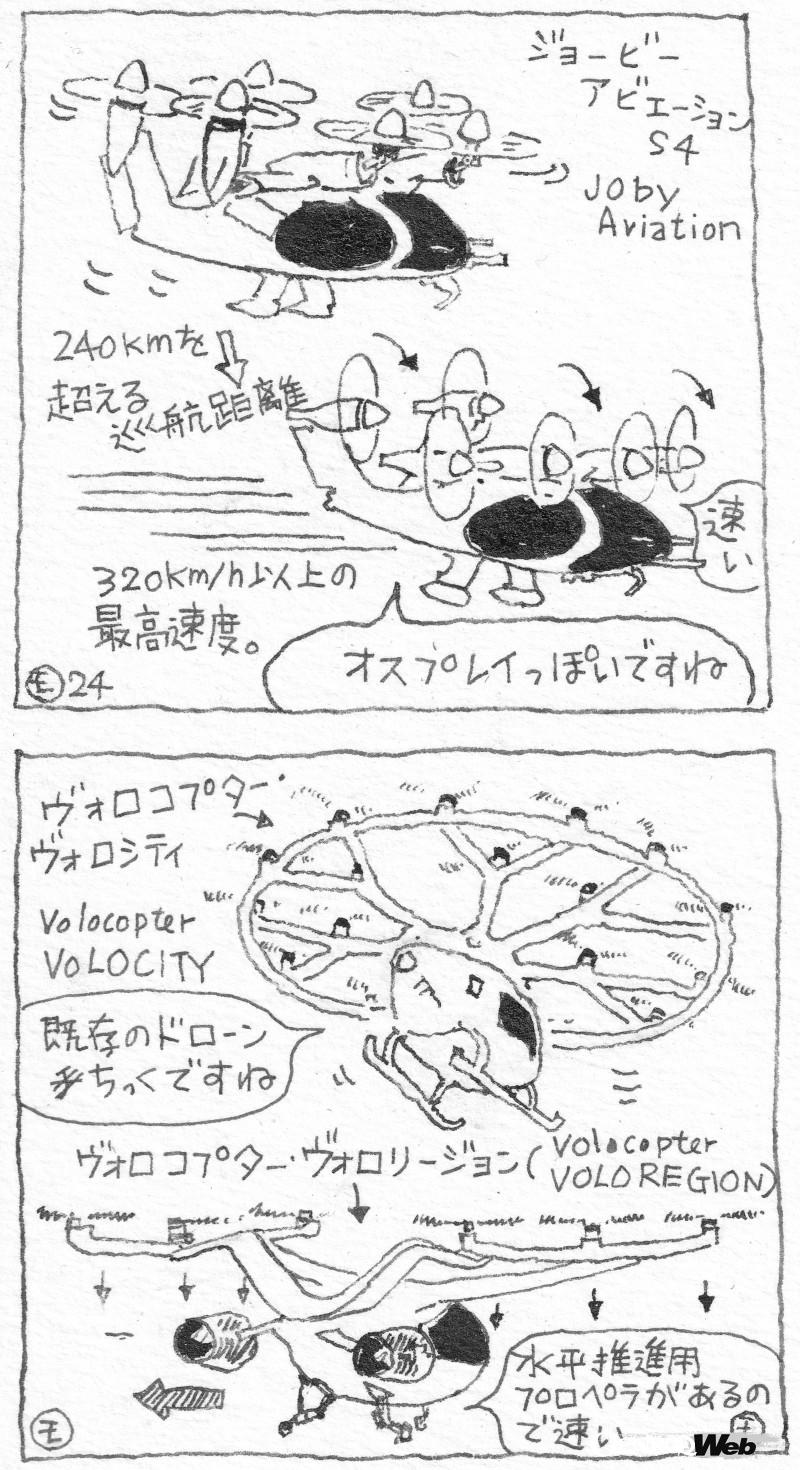 ジョービー
アビエーション
S4
JOBY
Aviation
240kmを
超える
巡航距離
速い
320km/h以上の
最高速度。
オスプレイっぽいですね
モ24
ヴォロコプター・
ヴォロシティ
Volocopter
VOLOCITY
既存のドローン
ちっくですね
ヴォロコプター・ヴォロリージョン(Volocopter
VOLOREGION)
水平推進用
プロペラがあるの
で速い
モ
Web